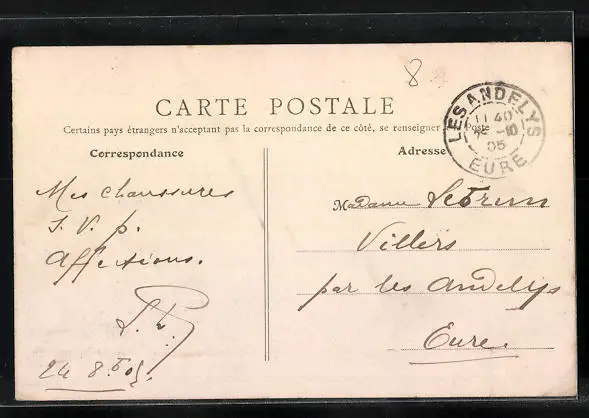 8
CARTE POSTALE
Certains pays étrangers n'acceptant pas la correspondance de ce côté, se renseigner à la Poste
LES ANDELYS
11 40
05
EURE
Correspondance
Adresse
Mes chaussures
S. V. p.
Affections.
24 8bre 05
Madame
Villers
par les Andelys
Eure.